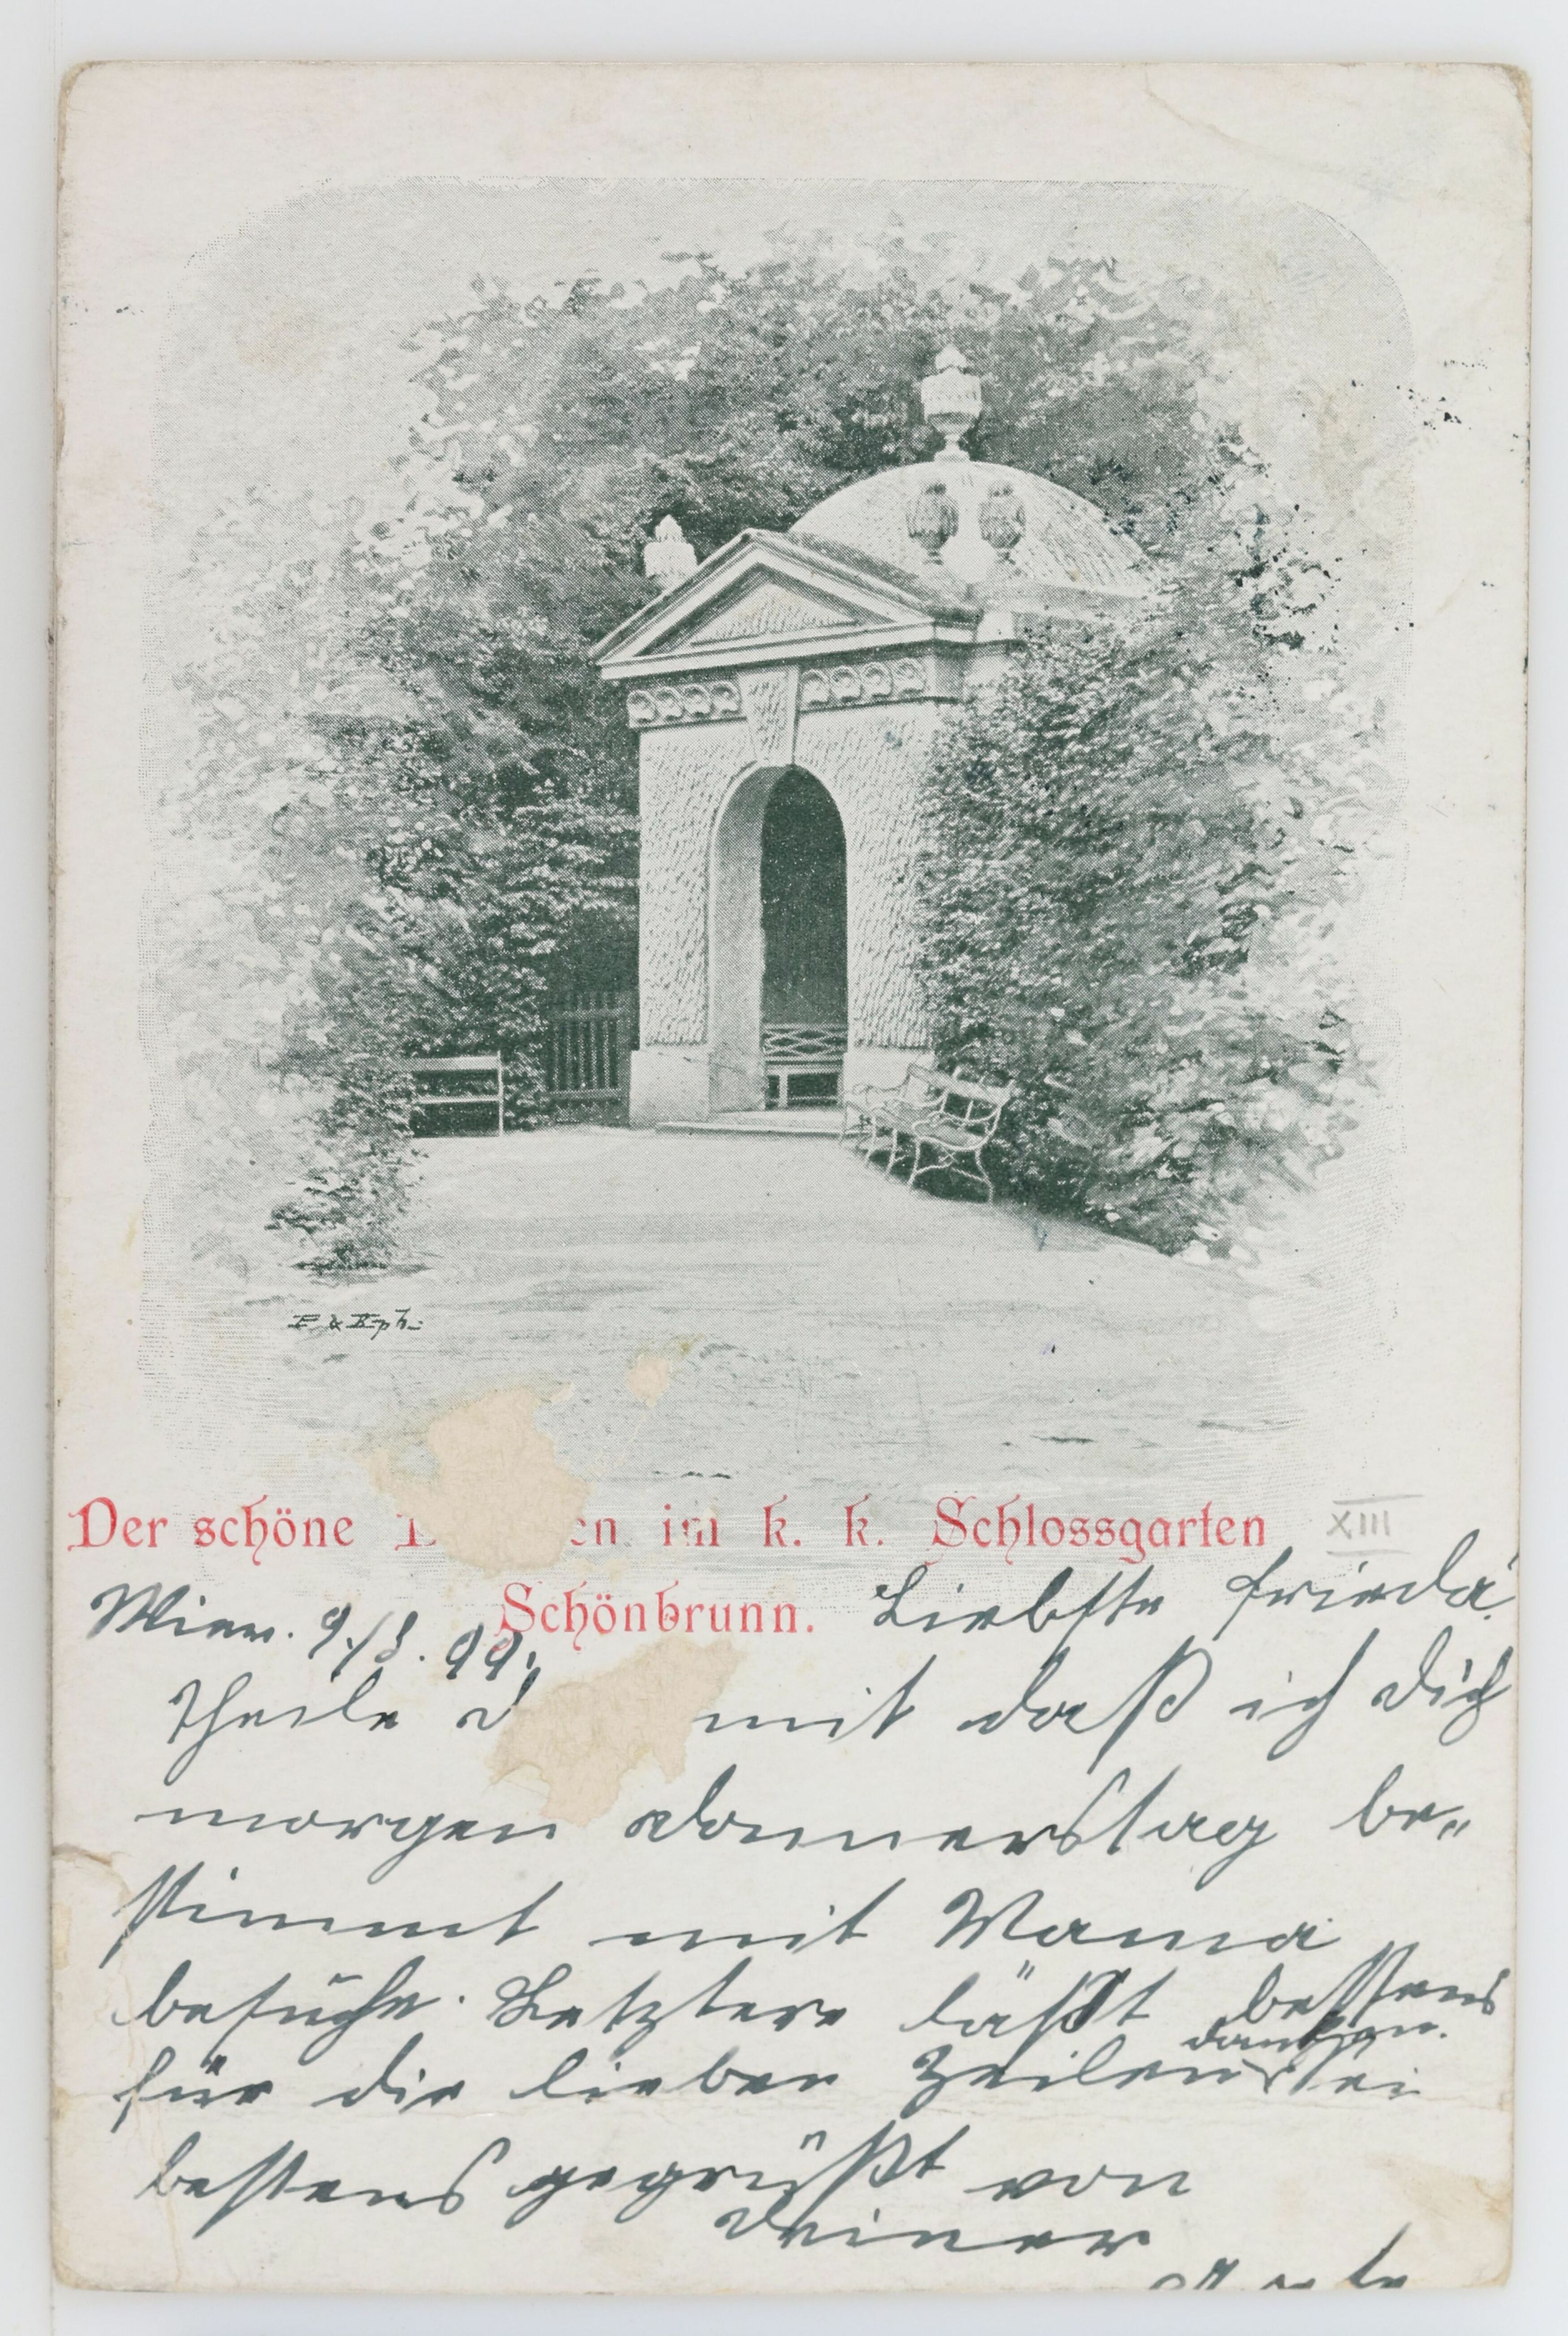 P & Eph.
Der schöne en im k. k. Schlossgarten XIII
Schönbrunn.
Wien. 9./8. 99.
Liebste Frieda!
Theile mit daß ich Dich
morgen Donnerstag be„
stimmt mit Mama
besuche. Letztere läßt bestens
danken.
für die lieben Zeilen sei
bestens gegrüßt von
Deiner